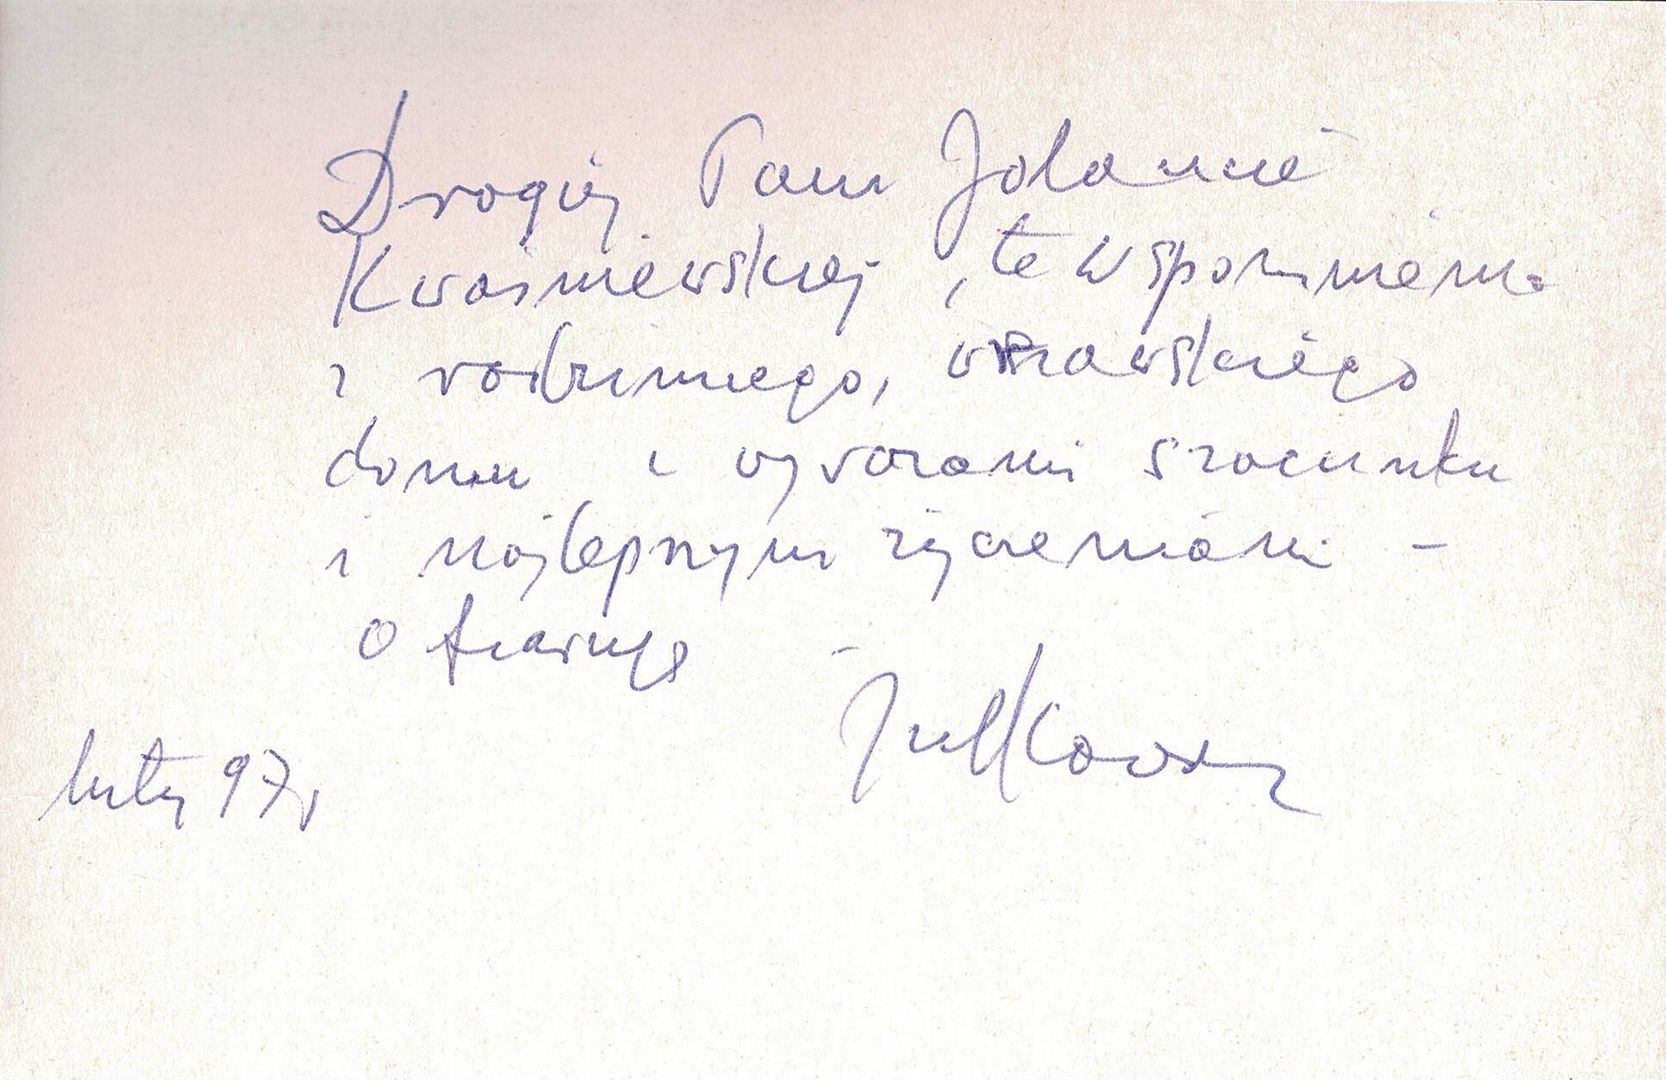 Drogiej Pani Jolancie
Kwaśniewskiej, te wspomnienia
z rodzinnego,
domu z wyrazami szacunku
i najlepszymi życzeniami –
ofiaruję
luty 97r